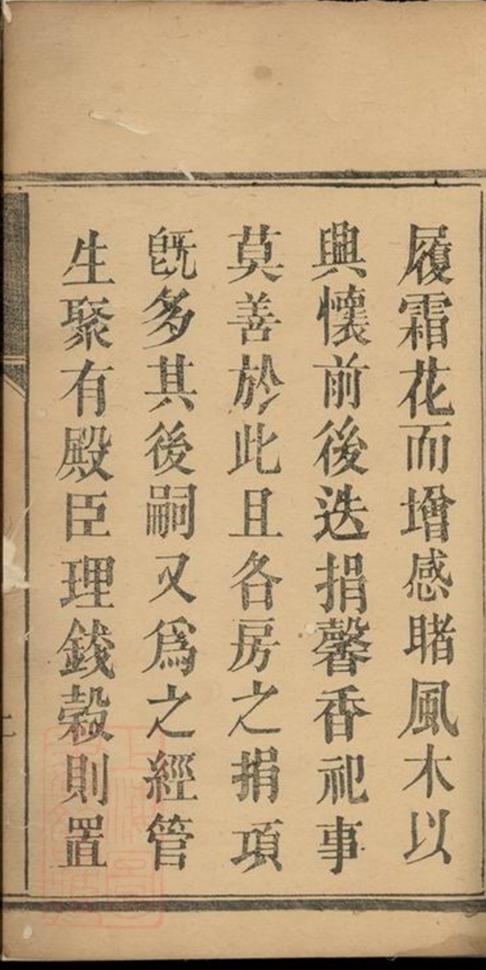 履霜花而增感睹風木以
興懷前後迭捐馨香祀事
莫善於此且各房之捐項
旣多其後嗣又爲之經管
生聚有殿臣理錢穀則置